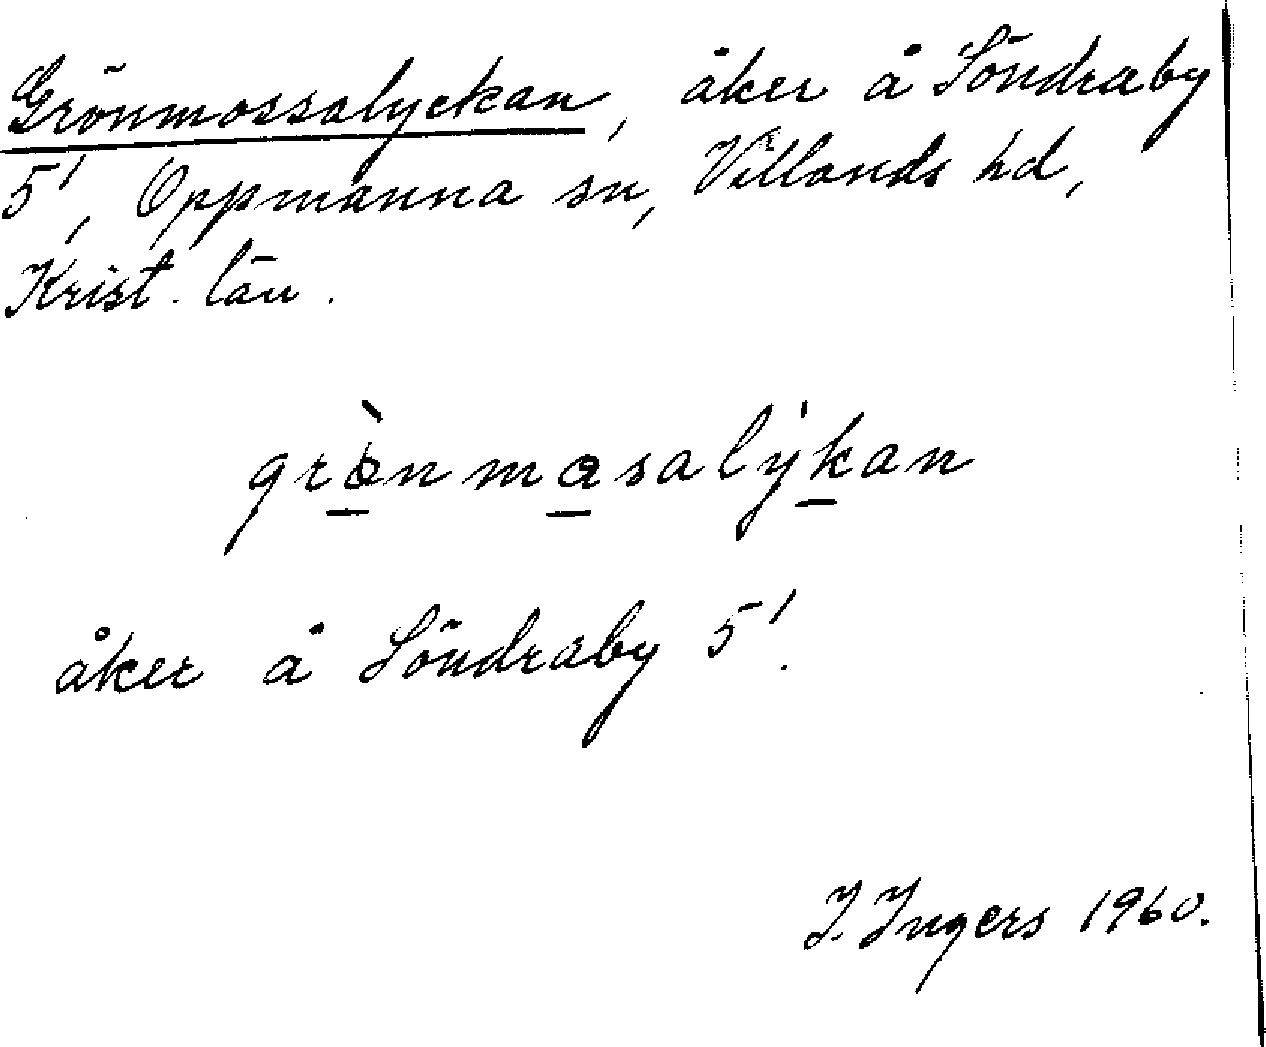 Grönmossalyckan, åker å Söndraby
5', Oppmanna sn, Villands hd,
Krist. län.
grönmasalykan
åker å Söndraby 5'.
I. Ingers 1960.